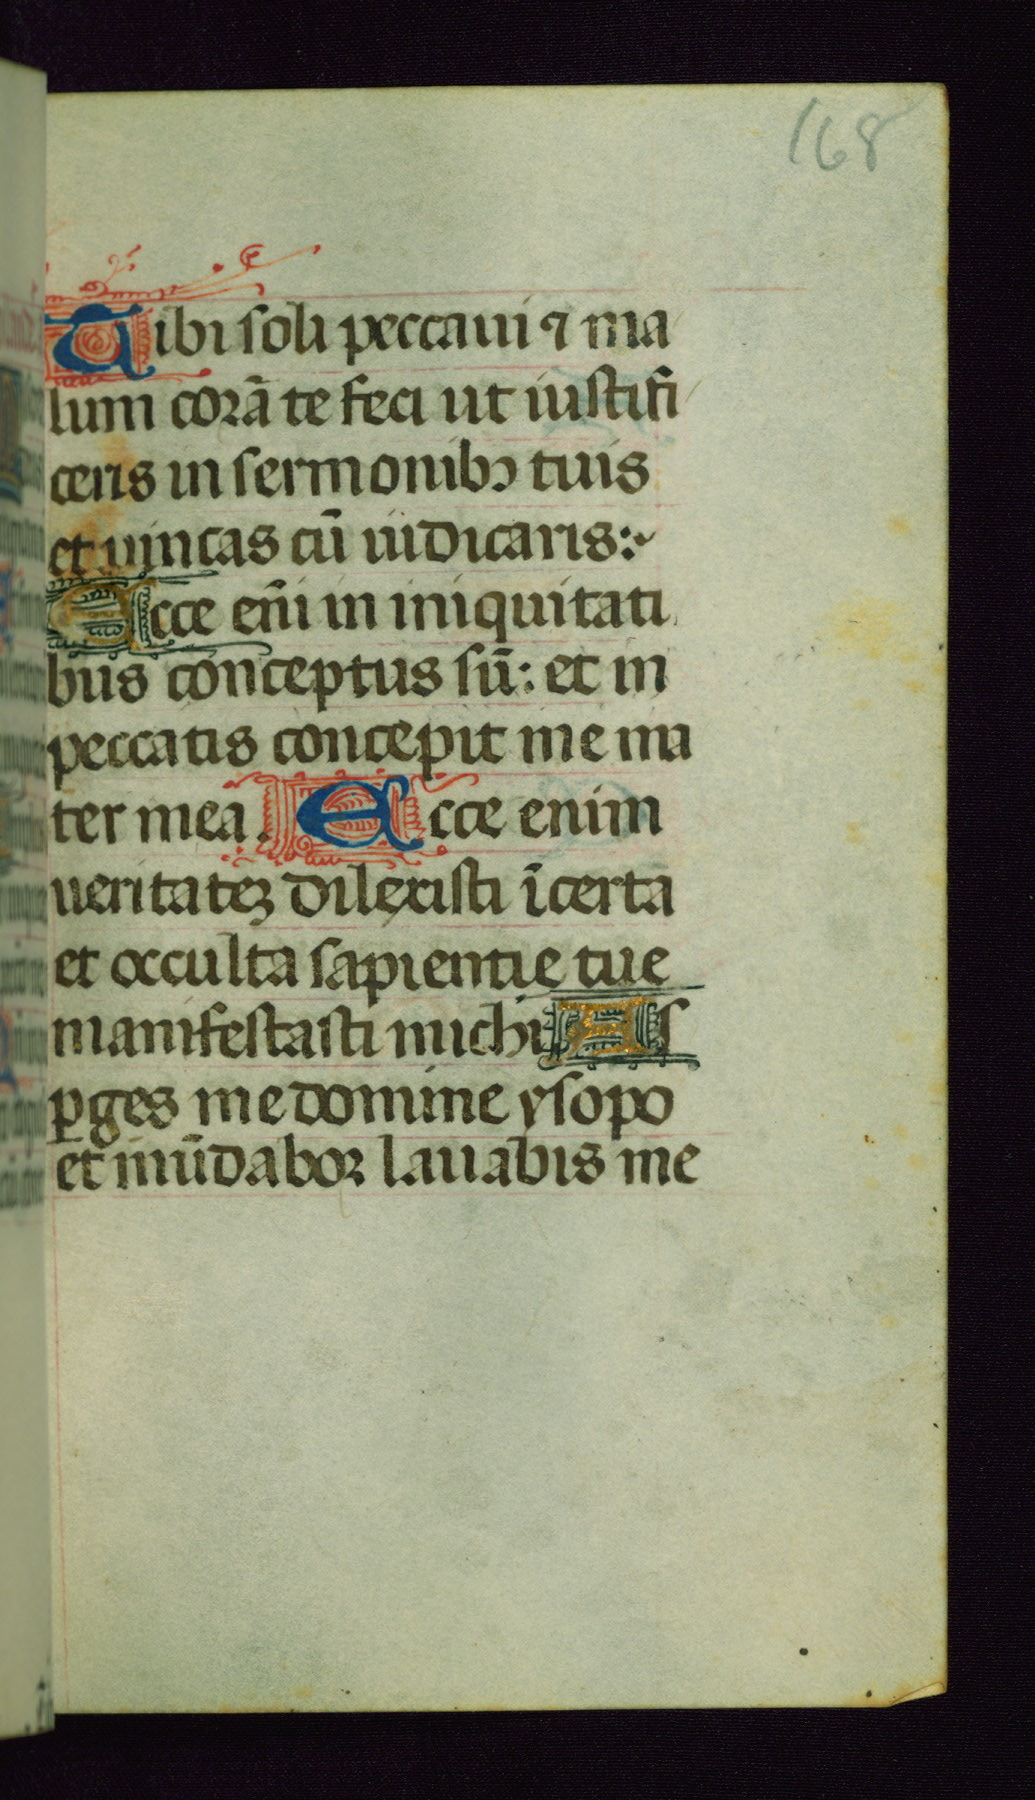 168
Tibi soli peccaui ⁊ ma
lum corā te feci ut iustifi
ceris in sermonibꝫ tuis
et uincas cū iudicaris:~
Ecce eni̅ in iniquitati
bus conceptus sū: et in
peccatis concepit me ma
ter mea. Ecce enim
ueritateꝫ dilexisti īcerta
et occulta sapientie tue
manifestasti michi As
ꝑges me domine ysopo
et mūdabor lauabis me